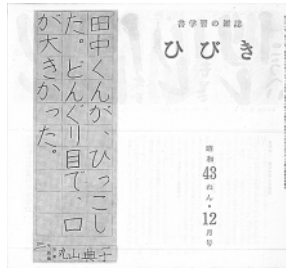 書学習の雑誌
ひびき
昭和43ねん・12月号
田中くんが、ひっこし
た。どんぐり目で、口
が大きかった。
丸山典子